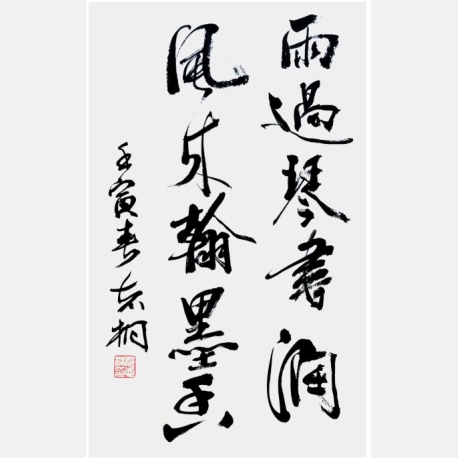 雨過琴書潤
風来翰墨香
壬寅春 桐